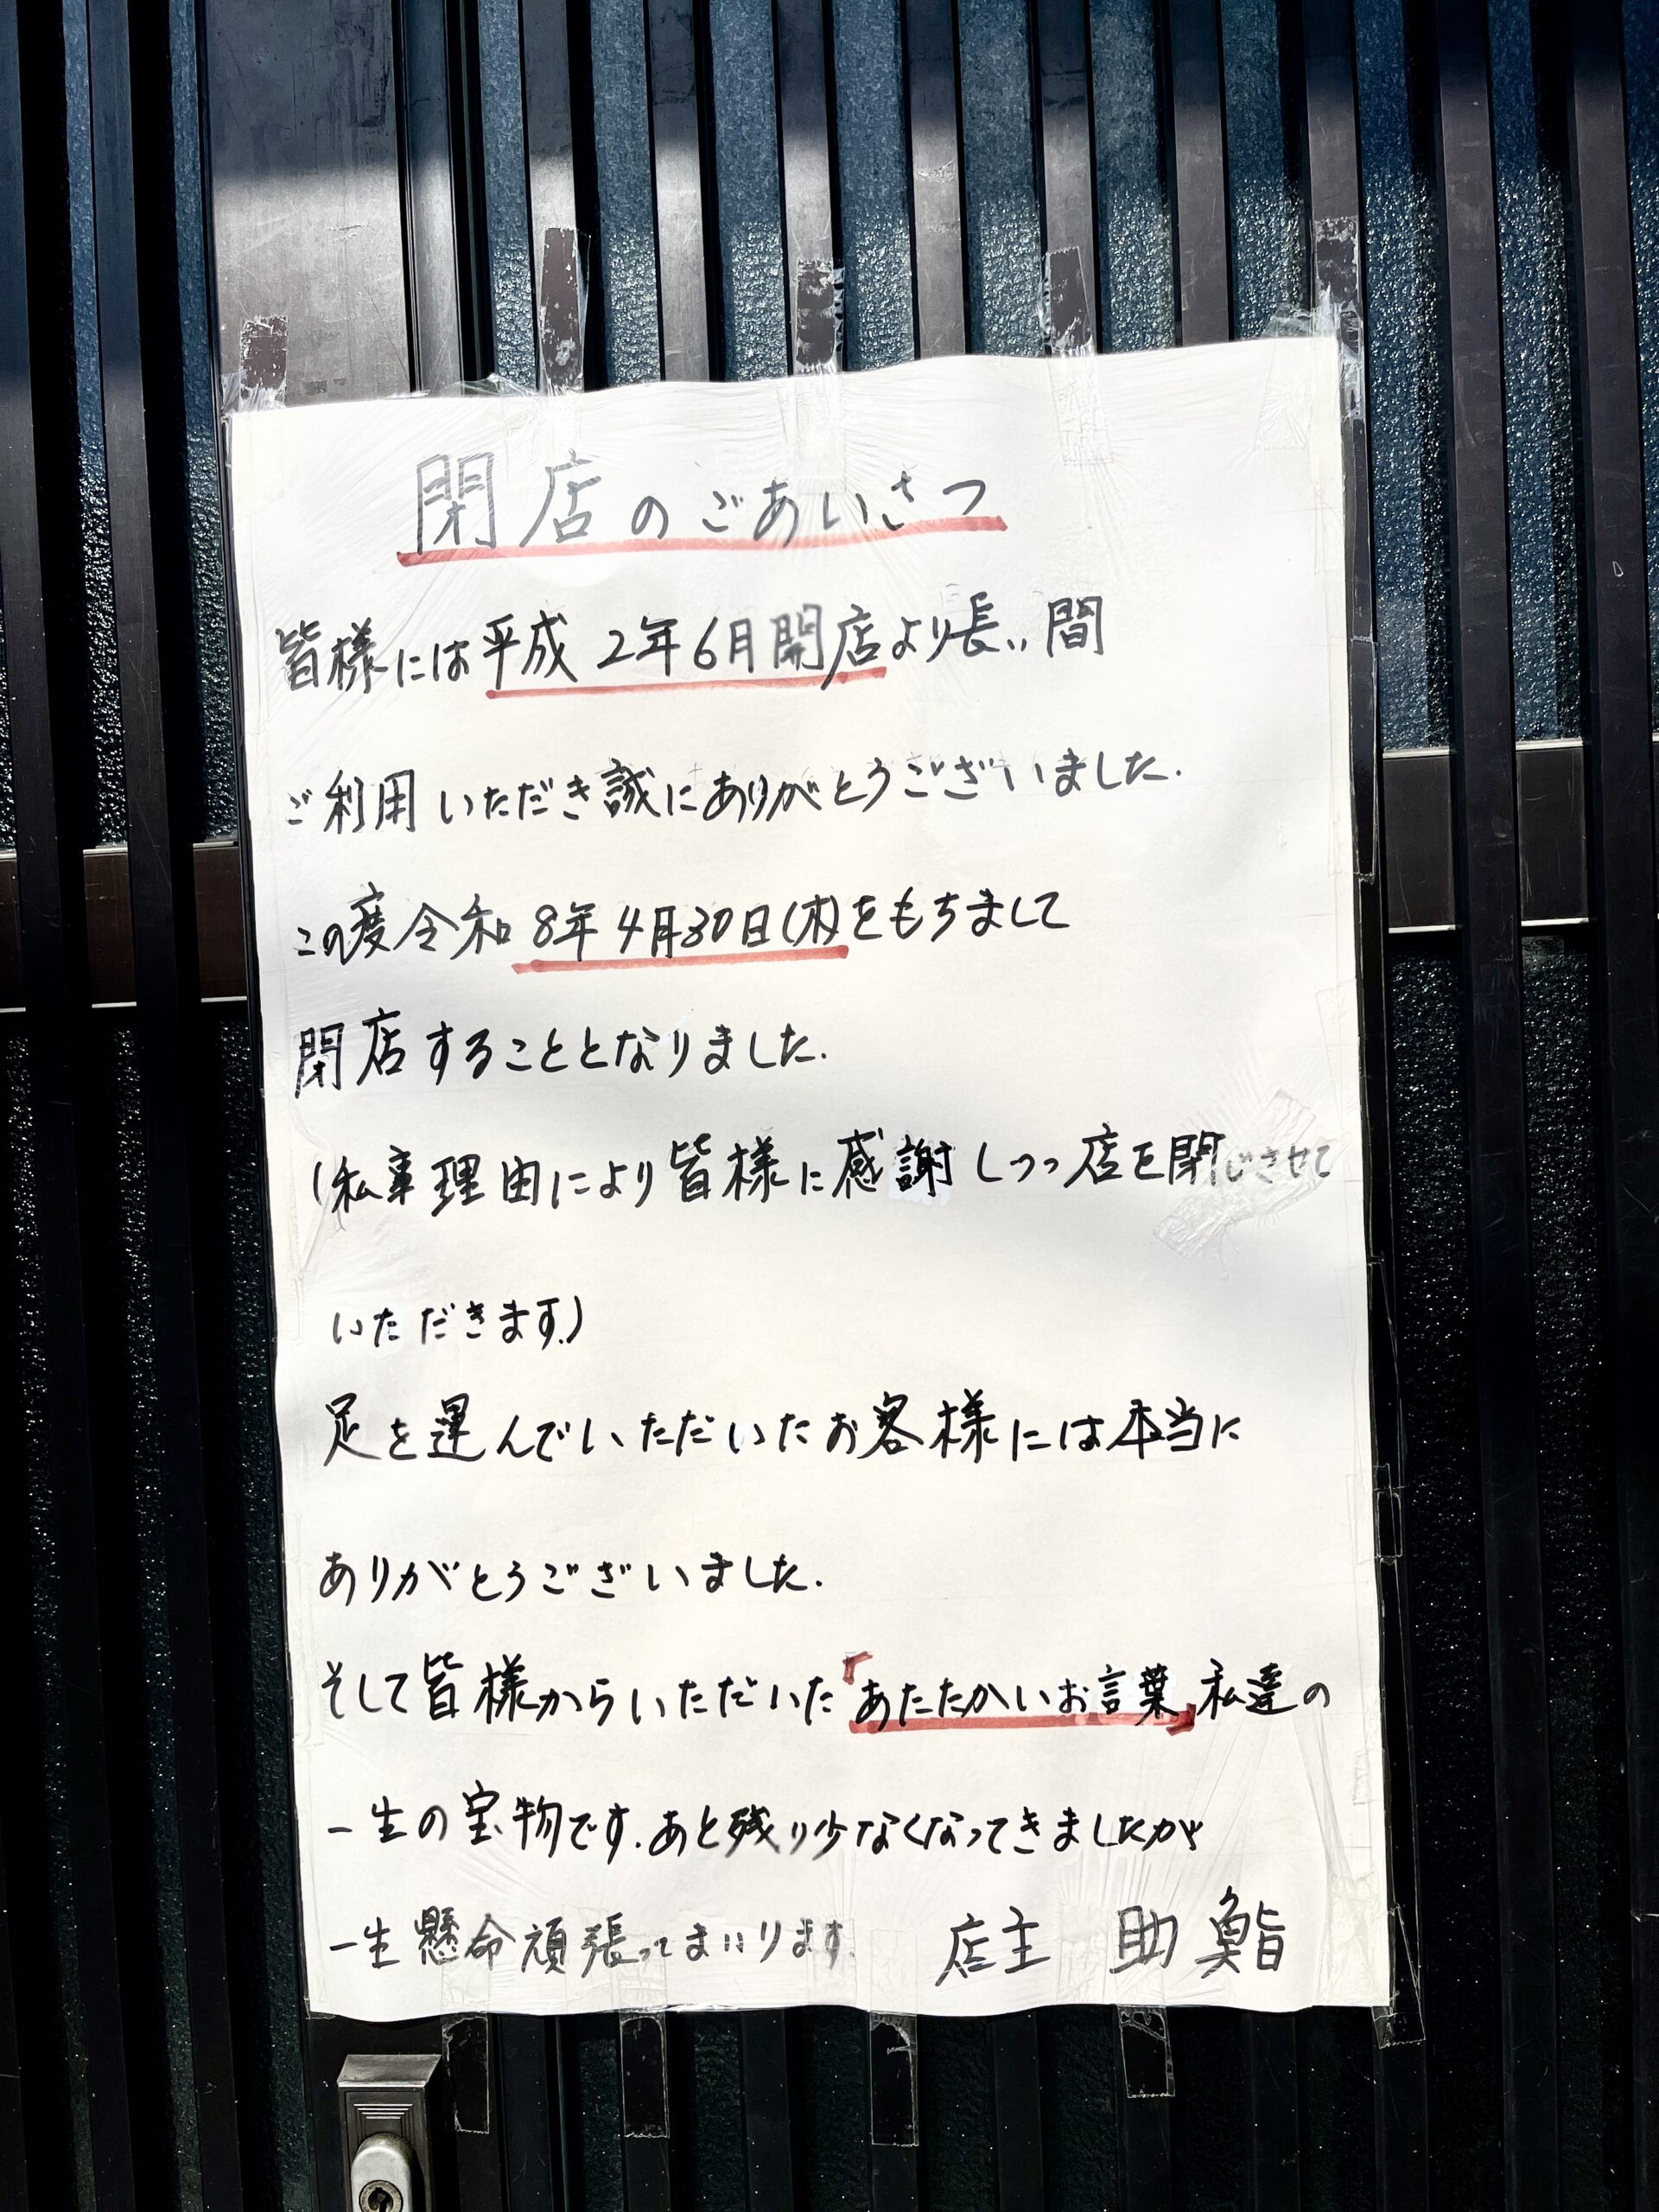 閉店のごあいさつ
皆様には平成2年6月開店より長い間
ご利用いただき誠にありがとうございました.
この度令和8年4月30日(木)をもちまして
閉店することとなりました.
(私事理由により皆様に感謝しつつ店を閉じさせて
いただきます.)
足を運んでいただいたお客様には本当に
ありがとうございました.
そして皆様からいただいた「あたたかいお言葉」私達の
一生の宝物です.あと残り少なくなってきましたが
一生懸命頑張ってまいります.
店主 助鮨